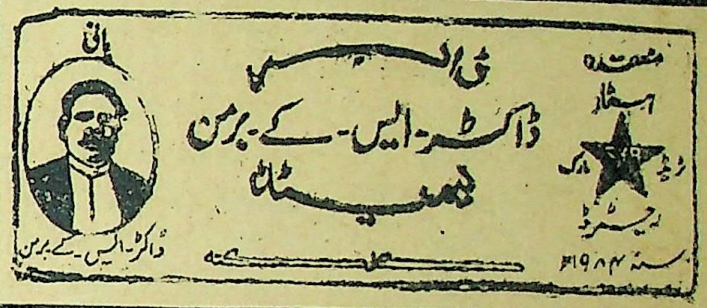 بانی
ڈاکٹر۔ایس۔کے برمن
ڈاکٹر۔ایس۔کے۔برمن
لمیٹڈ
کلکتہ
منعقدہ
اسٹار
ٹریڈ مارک
رجسٹرڈ
سنہ ۱۹۸۴ء